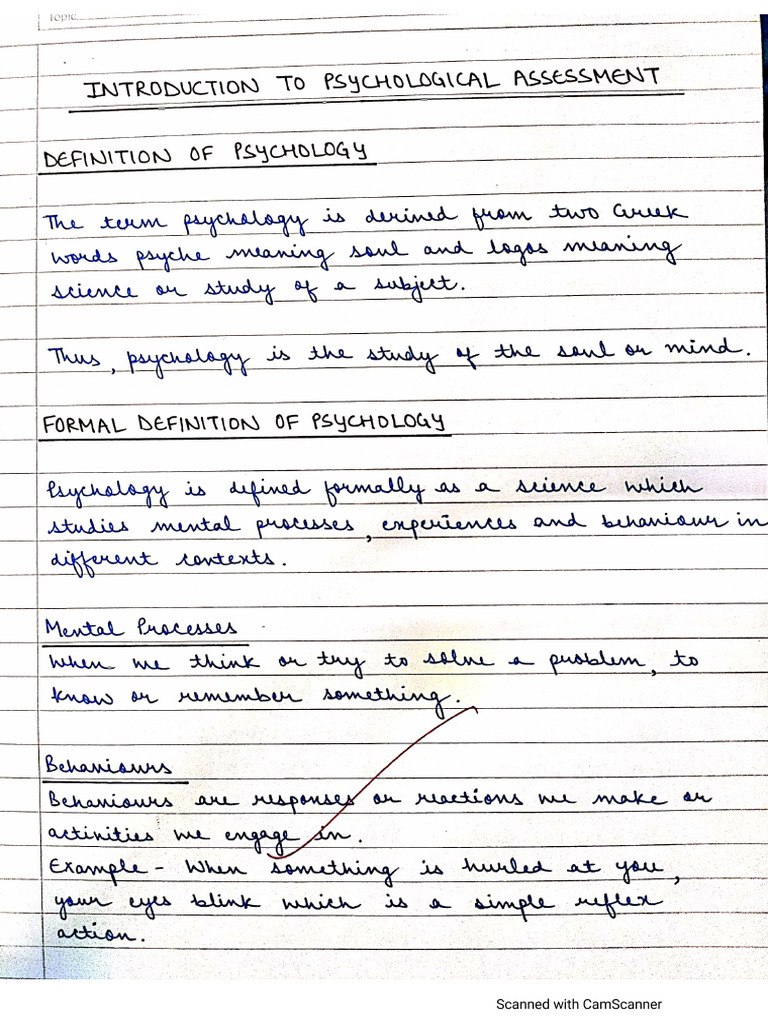 Topic
INTRODUCTION TO PSYCHOLOGICAL ASSESSMENT
DEFINITION OF PSYCHOLOGY
The term psychology is derived from two Greek
words psyche meaning soul and logos meaning
science or study of a subject.
Thus, psychology is the study of the soul or mind.
FORMAL DEFINITION OF PSYCHOLOGY
Psychology is defined formally as a science which
studies mental processes, experiences and behaviour in
different contexts.
Mental Processes
When we think or try to solve a problem, to
know or remember something.
Behaviours
Behaviours are responses or reactions we make or
activities we engage in.
Example - When something is hurled at you,
your eyes blink which is a simple reflex
action.
Scanned with CamScanner